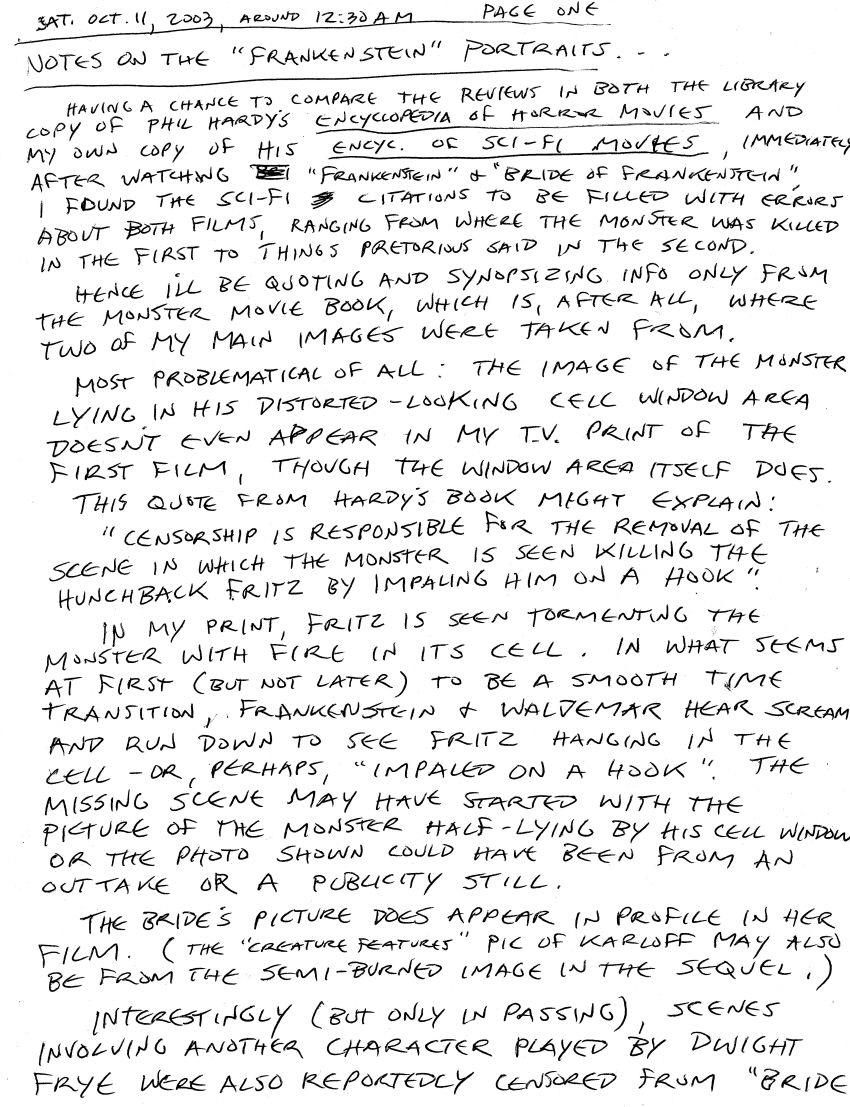 SAT. OCT. 11, 2003, AROUND 12:30 AM PAGE ONE
NOTES ON THE "FRANKENSTEIN" PORTRAITS. . .
HAVING A CHANCE TO COMPARE THE REVIEWS IN BOTH THE LIBRARY
COPY OF PHIL HARDY'S ENCYCLOPEDIA OF HORROR MOVIES AND
MY OWN COPY OF HIS ENCYC. OF SCI-FI MOVIES, IMMEDIATELY
AFTER WATCHING "FRANKENSTEIN" & "BRIDE OF FRANKENSTEIN"
I FOUND THE SCI-FI CITATIONS TO BE FILLED WITH ERRORS
ABOUT BOTH FILMS, RANGING FROM WHERE THE MONSTER WAS KILLED
IN THE FIRST TO THINGS PRETORIOUS SAID IN THE SECOND.
HENCE I'LL BE QUOTING AND SYNOPSIZING INFO ONLY FROM
THE MONSTER MOVIE BOOK, WHICH IS, AFTER ALL, WHERE
TWO OF MY MAIN IMAGES WERE TAKEN FROM.
MOST PROBLEMATICAL OF ALL: THE IMAGE OF THE MONSTER
LYING IN HIS DISTORTED-LOOKING CELL WINDOW AREA
DOESN'T EVEN APPEAR IN MY T.V. PRINT OF THE
FIRST FILM, THOUGH THE WINDOW AREA ITSELF DOES.
THIS QUOTE FROM HARDY'S BOOK MIGHT EXPLAIN:
"CENSORSHIP IS RESPONSIBLE FOR THE REMOVAL OF THE
SCENE IN WHICH THE MONSTER IS SEEN KILLING THE
HUNCHBACK FRITZ BY IMPALING HIM ON A HOOK".
IN MY PRINT, FRITZ IS SEEN TORMENTING THE
MONSTER WITH FIRE IN ITS CELL. IN WHAT SEEMS
AT FIRST (BUT NOT LATER) TO BE A SMOOTH TIME
TRANSITION, FRANKENSTEIN & WALDEMAR HEAR SCREAM
AND RUN DOWN TO SEE FRITZ HANGING IN THE
CELL - OR, PERHAPS, "IMPALED ON A HOOK". THE
MISSING SCENE MAY HAVE STARTED WITH THE
PICTURE OF THE MONSTER HALF-LYING BY HIS CELL WINDOW
OR THE PHOTO SHOWN COULD HAVE BEEN FROM AN
OUTTAKE OR A PUBLICITY STILL.
THE BRIDE'S PICTURE DOES APPEAR IN PROFILE IN HER
FILM. (THE "CREATURE FEATURES" PIC OF KARLOFF MAY ALSO
BE FROM THE SEMI-BURNED IMAGE IN THE SEQUEL.)
INTERESTINGLY (BUT ONLY IN PASSING), SCENES
INVOLVING ANOTHER CHARACTER PLAYED BY DWIGHT
FRYE WERE ALSO REPORTEDLY CENSORED FROM "BRIDE